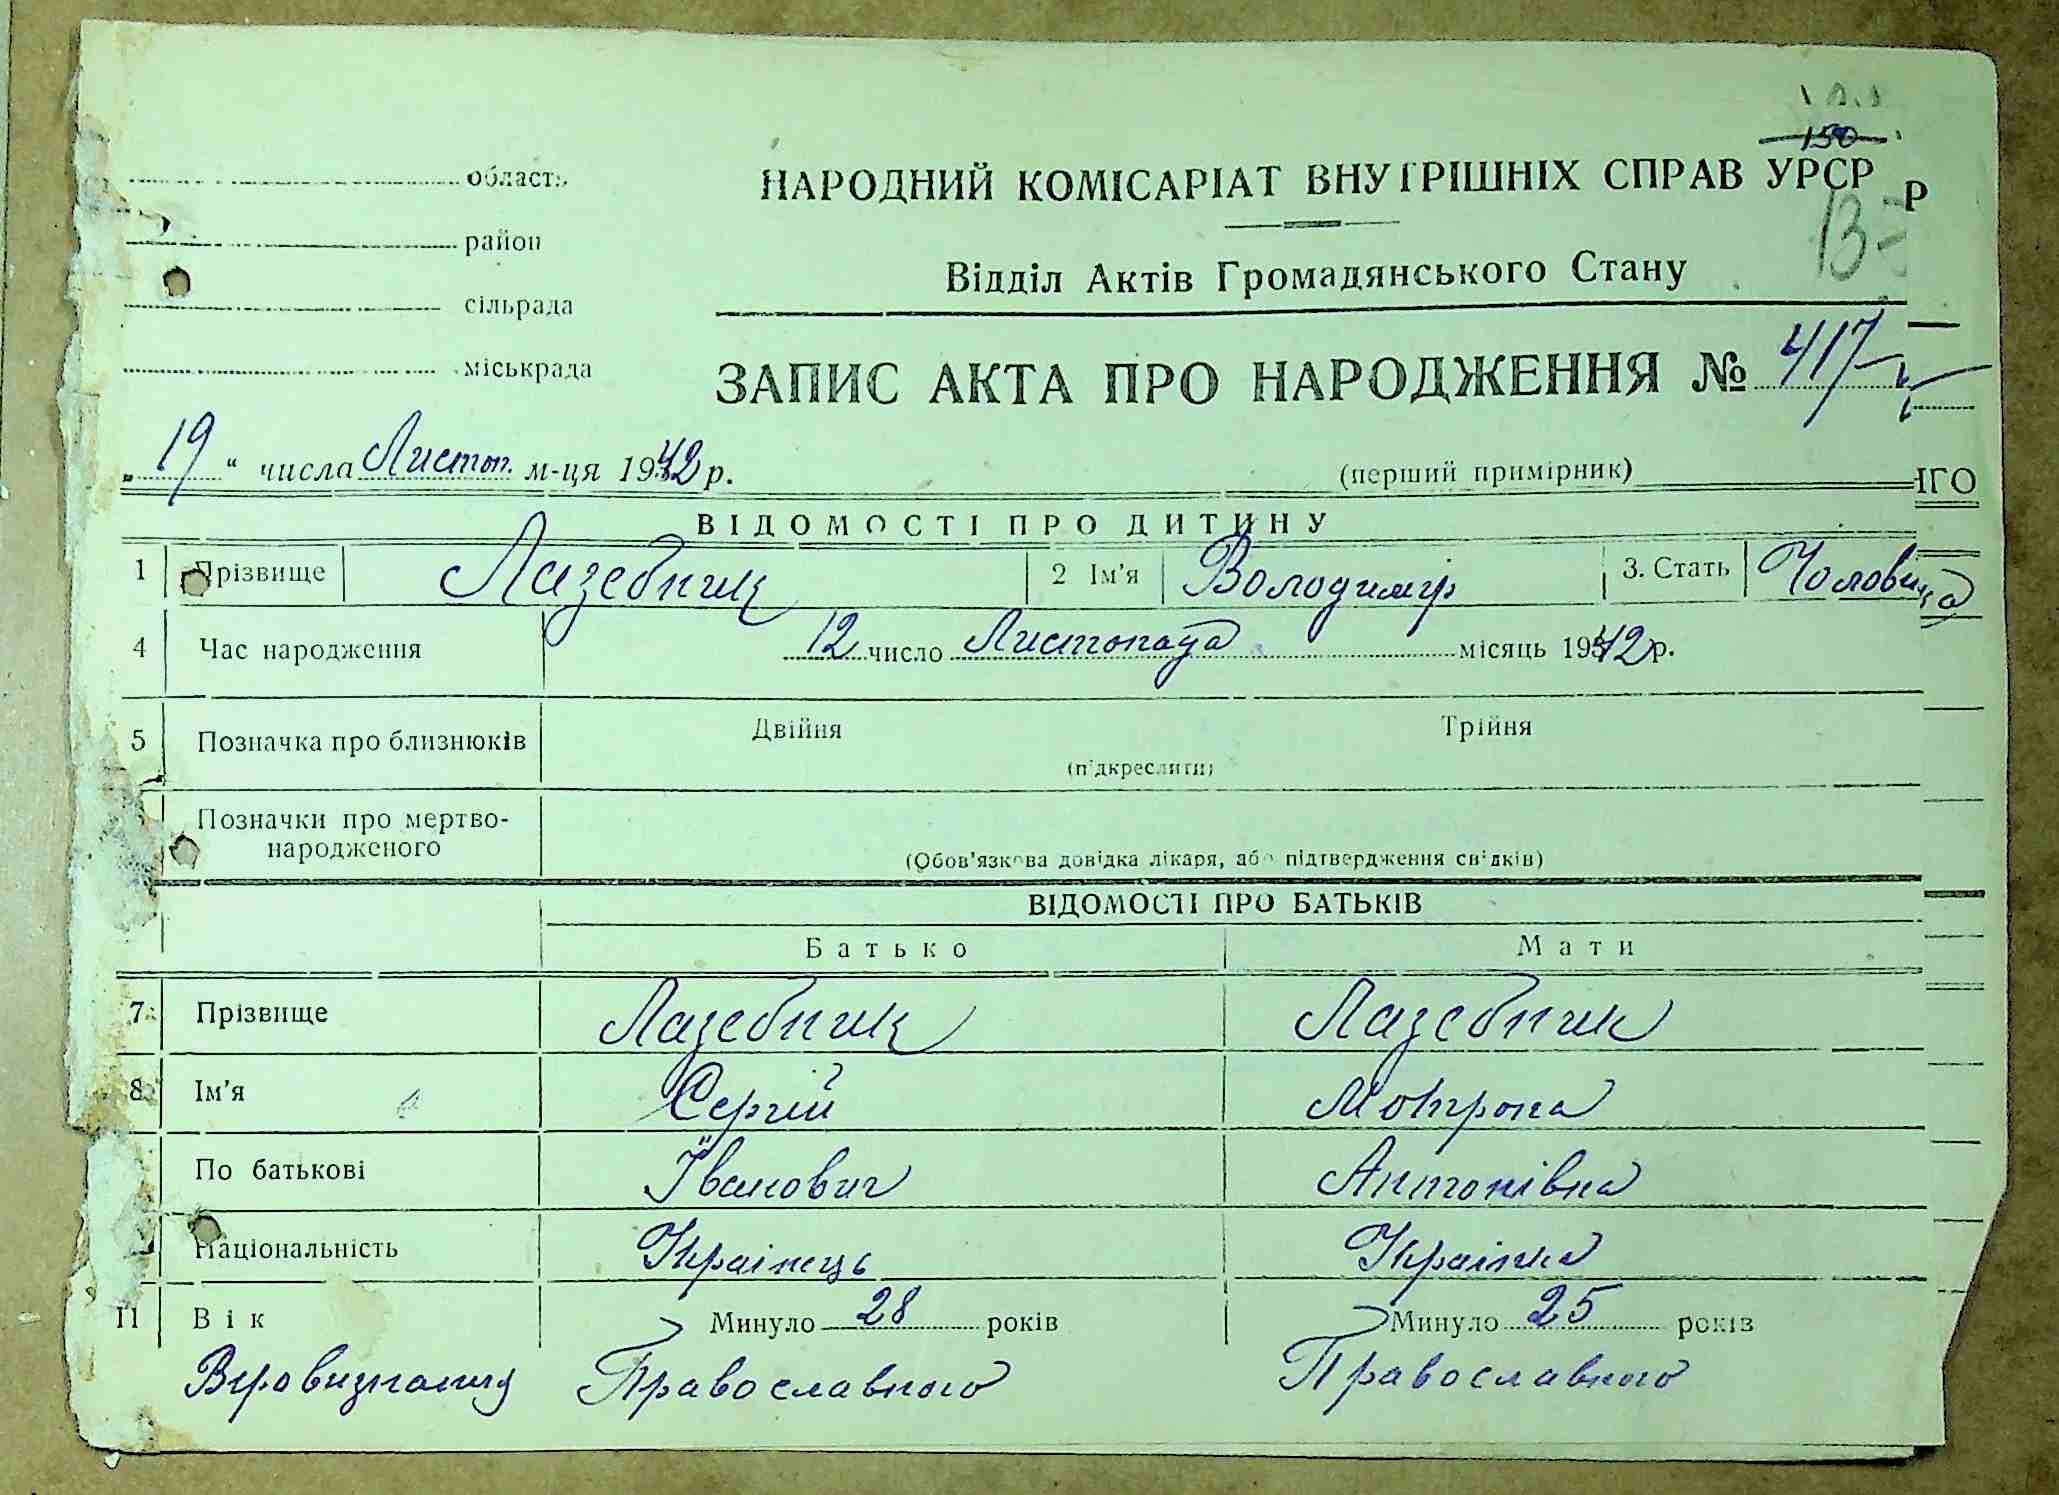 150
область
НАРОДНИЙ КОМІСАРІАТ ВНУТРІШНІХ СПРАВ УРСР
Р
район
13
Відділ Актів Громадянського Стану
сільрада
міськрада
ЗАПИС АКТА ПРО НАРОДЖЕННЯ № 417
„19“ числа Листоп. м-ця 1942 р.
(перший примірник)
ІГО
ВІДОМОСТІ ПРО ДИТИНУ
1 Прізвище Лазебник 2 Ім'я Володимір 3. Стать Чоловіча
4 Час народження 12 число Листопада місяць 1942 р.
5 Позначка про близнюків Двійня Трійня
(підкреслити)
Позначки про мертво-
народженого
(Обов'язкова довідка лікаря, або підтвердження свідків)
ВІДОМОСТІ ПРО БАТЬКІВ
Батько Мати
7 Прізвище Лазебник Лазебник
8 Ім'я Сергій Мокрона
По батькові Іванович Антонівна
Національність Українець Українка
11 Вік Минуло 28 років Минуло 25 років
Віровизнання Православного Православного